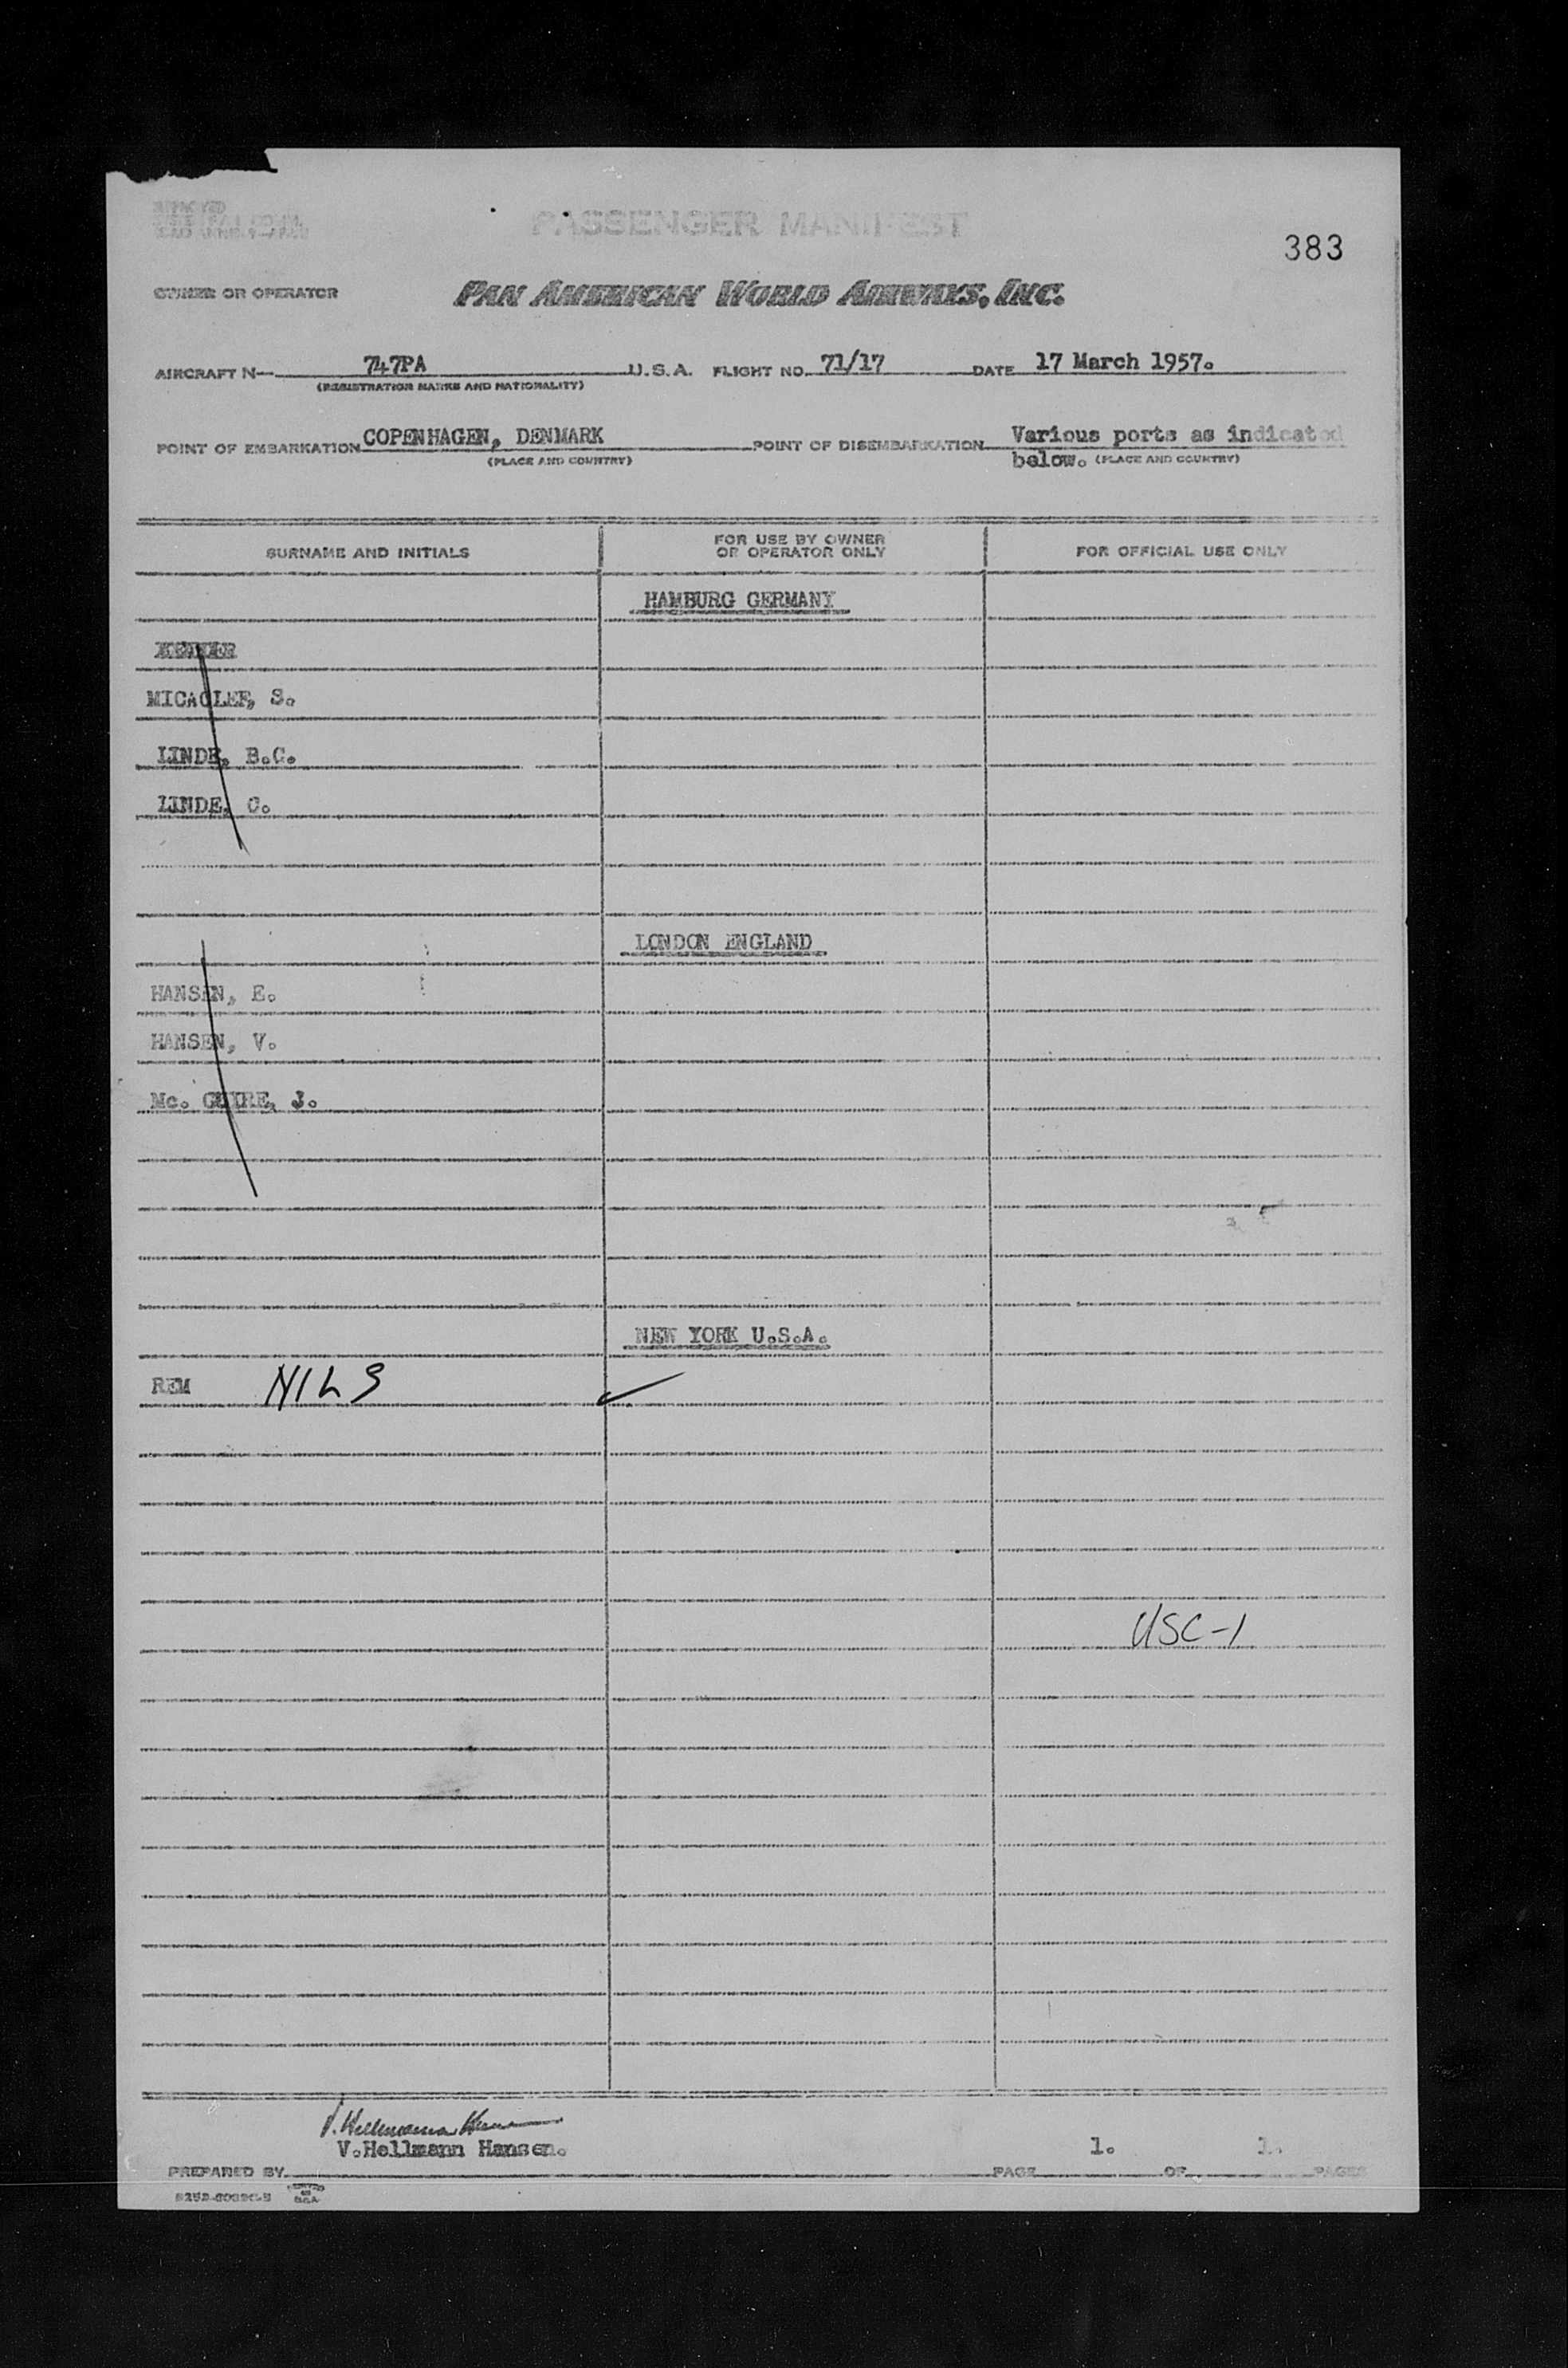 PASSENGER MANIFEST
383
OWNER OR OPERATOR PAN AMERICAN WORLD AIRWAYS, INC.
AIRCRAFT N— 747PA U.S.A. FLIGHT NO. 71/17 DATE 17 March 1957.
(REGISTRATION MARKS AND NATIONALITY)
POINT OF EMBARKATION COPENHAGEN, DENMARK POINT OF DISEMBARKATION Various ports as indicated
(PLACE AND COUNTRY) below. (PLACE AND COUNTRY)
SURNAME AND INITIALS FOR USE BY OWNER OR OPERATOR ONLY FOR OFFICIAL USE ONLY
HAMBURG GERMANY
MICAOLEF, S.
LINDE, B.C.
LINDE, C.
LONDON ENGLAND
HANSEN, E.
HANSEN, V.
Mc. GUIRE, J.
NEW YORK U.S.A.
REM NILS ✓
USC-1
V. Hellmann Hansen
V.Hellmann Hansen.
PREPARED BY PAGE 1. OF 1. PAGES